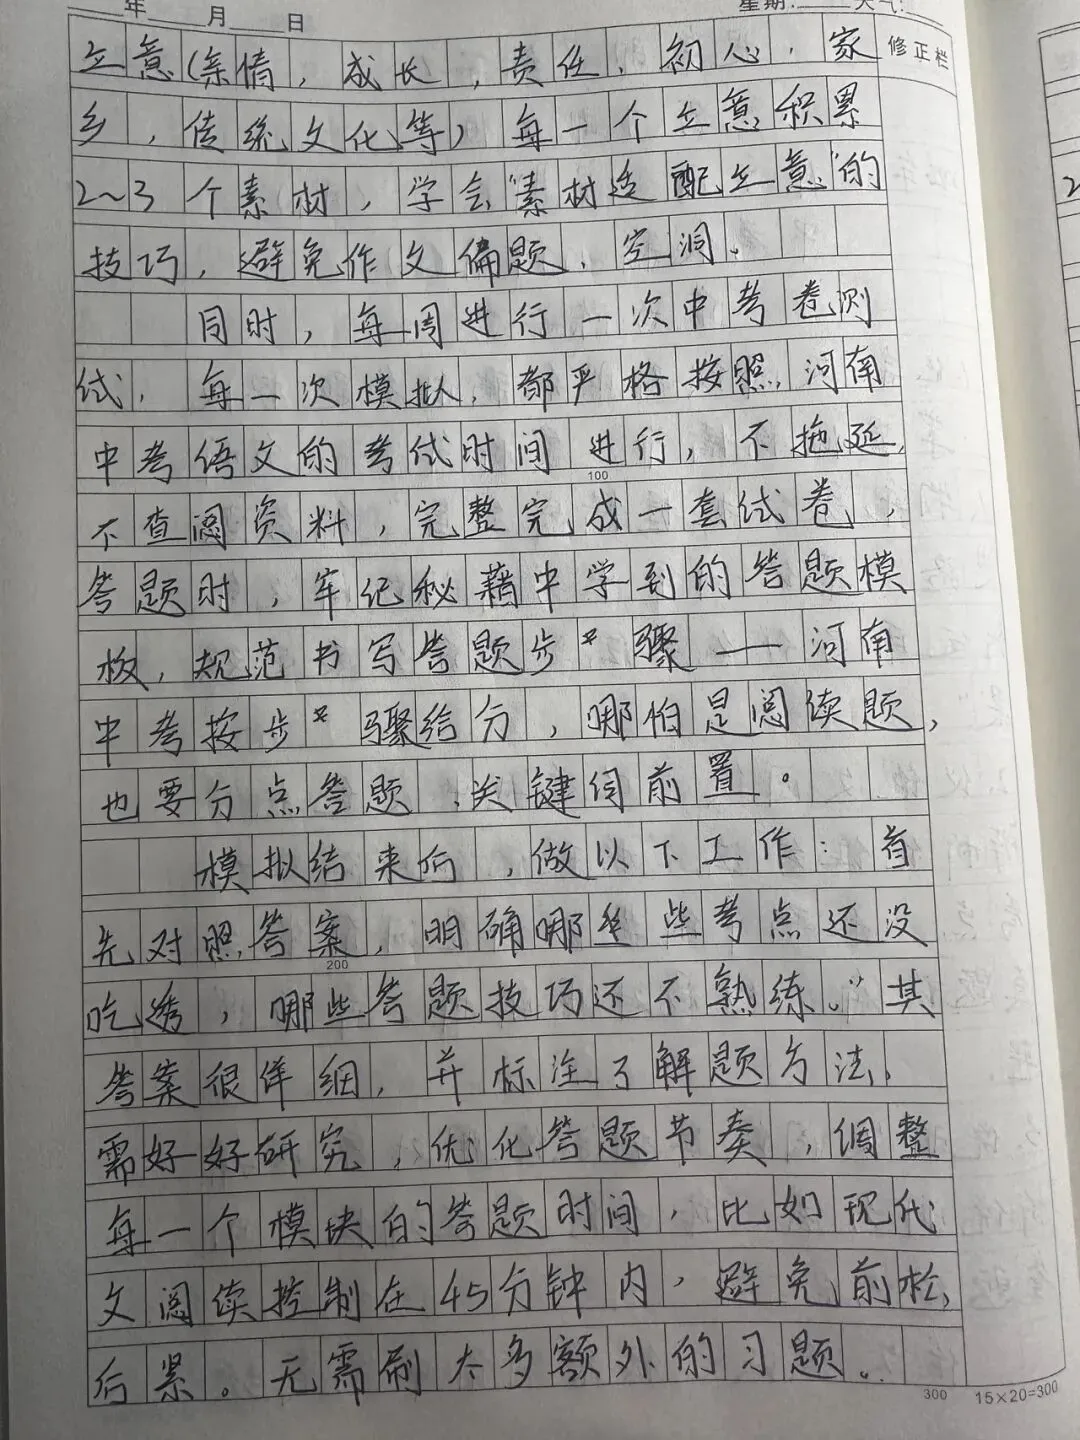 年 月 日 星期: 天气:
修正栏
立意(亲情,成长,责任,初心,家
乡,传统文化等)每一个立意积累
2~3个素材,学会“素材适配立意”的
技巧,避免作文偏题、空洞。
同时,每周进行一次中考卷测
试,每一次模拟,都严格按照河南
中考语文的考试时间进行,不拖延,
100
不查阅资料,完整完成一套试卷,
答题时,牢记秘籍中学到的答题模
板,规范书写答题步骤——河南
中考按步骤给分,哪怕是阅读题,
也要分点答题、关键词前置。
模拟结束后,做以下工作:首
先对照答案,明确哪些考点还没
200
吃透,哪些答题技巧还不熟练。”其
答案很详细,并标注了解题方法,
需好好研究,优化答题节奏,调整
每一个模块的答题时间,比如现代
文阅读控制在45分钟内,避免前松
后紧。无需刷太多额外的习题。
300 15×20=300